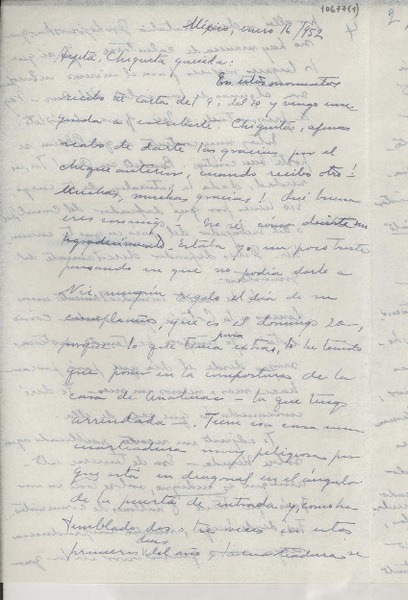 106771(1)
México, enero 16/952
Chiquita querida:
En estos momentos
recibo tu carta del 9, del 10 y vengo
a contestarte. Chiquita, apenas
acabo de darte las gracias por el
cheque anterior, cuando recibo otro!
Muchas, muchas gracias! Qué buena
eres conmigo! No sé cómo decirte mi
agradecimiento. Estaba yo un poco triste
pensando en que no podía darle a
ningún regalo el día de su
cumpleaños, que es el domingo 20,
porque lo que tenía para extras, lo he tenido
que poner en la compostura de la
casa de Anáhuac - la que tengo
arrendada -. Tiene esa casa una
cuarteadura muy peligrosa por
que está en diagonal en el ángulo
de la puerta de entrada, y como ha
temblado dos o tres veces en estos
primeros días del año la cuarteadura se